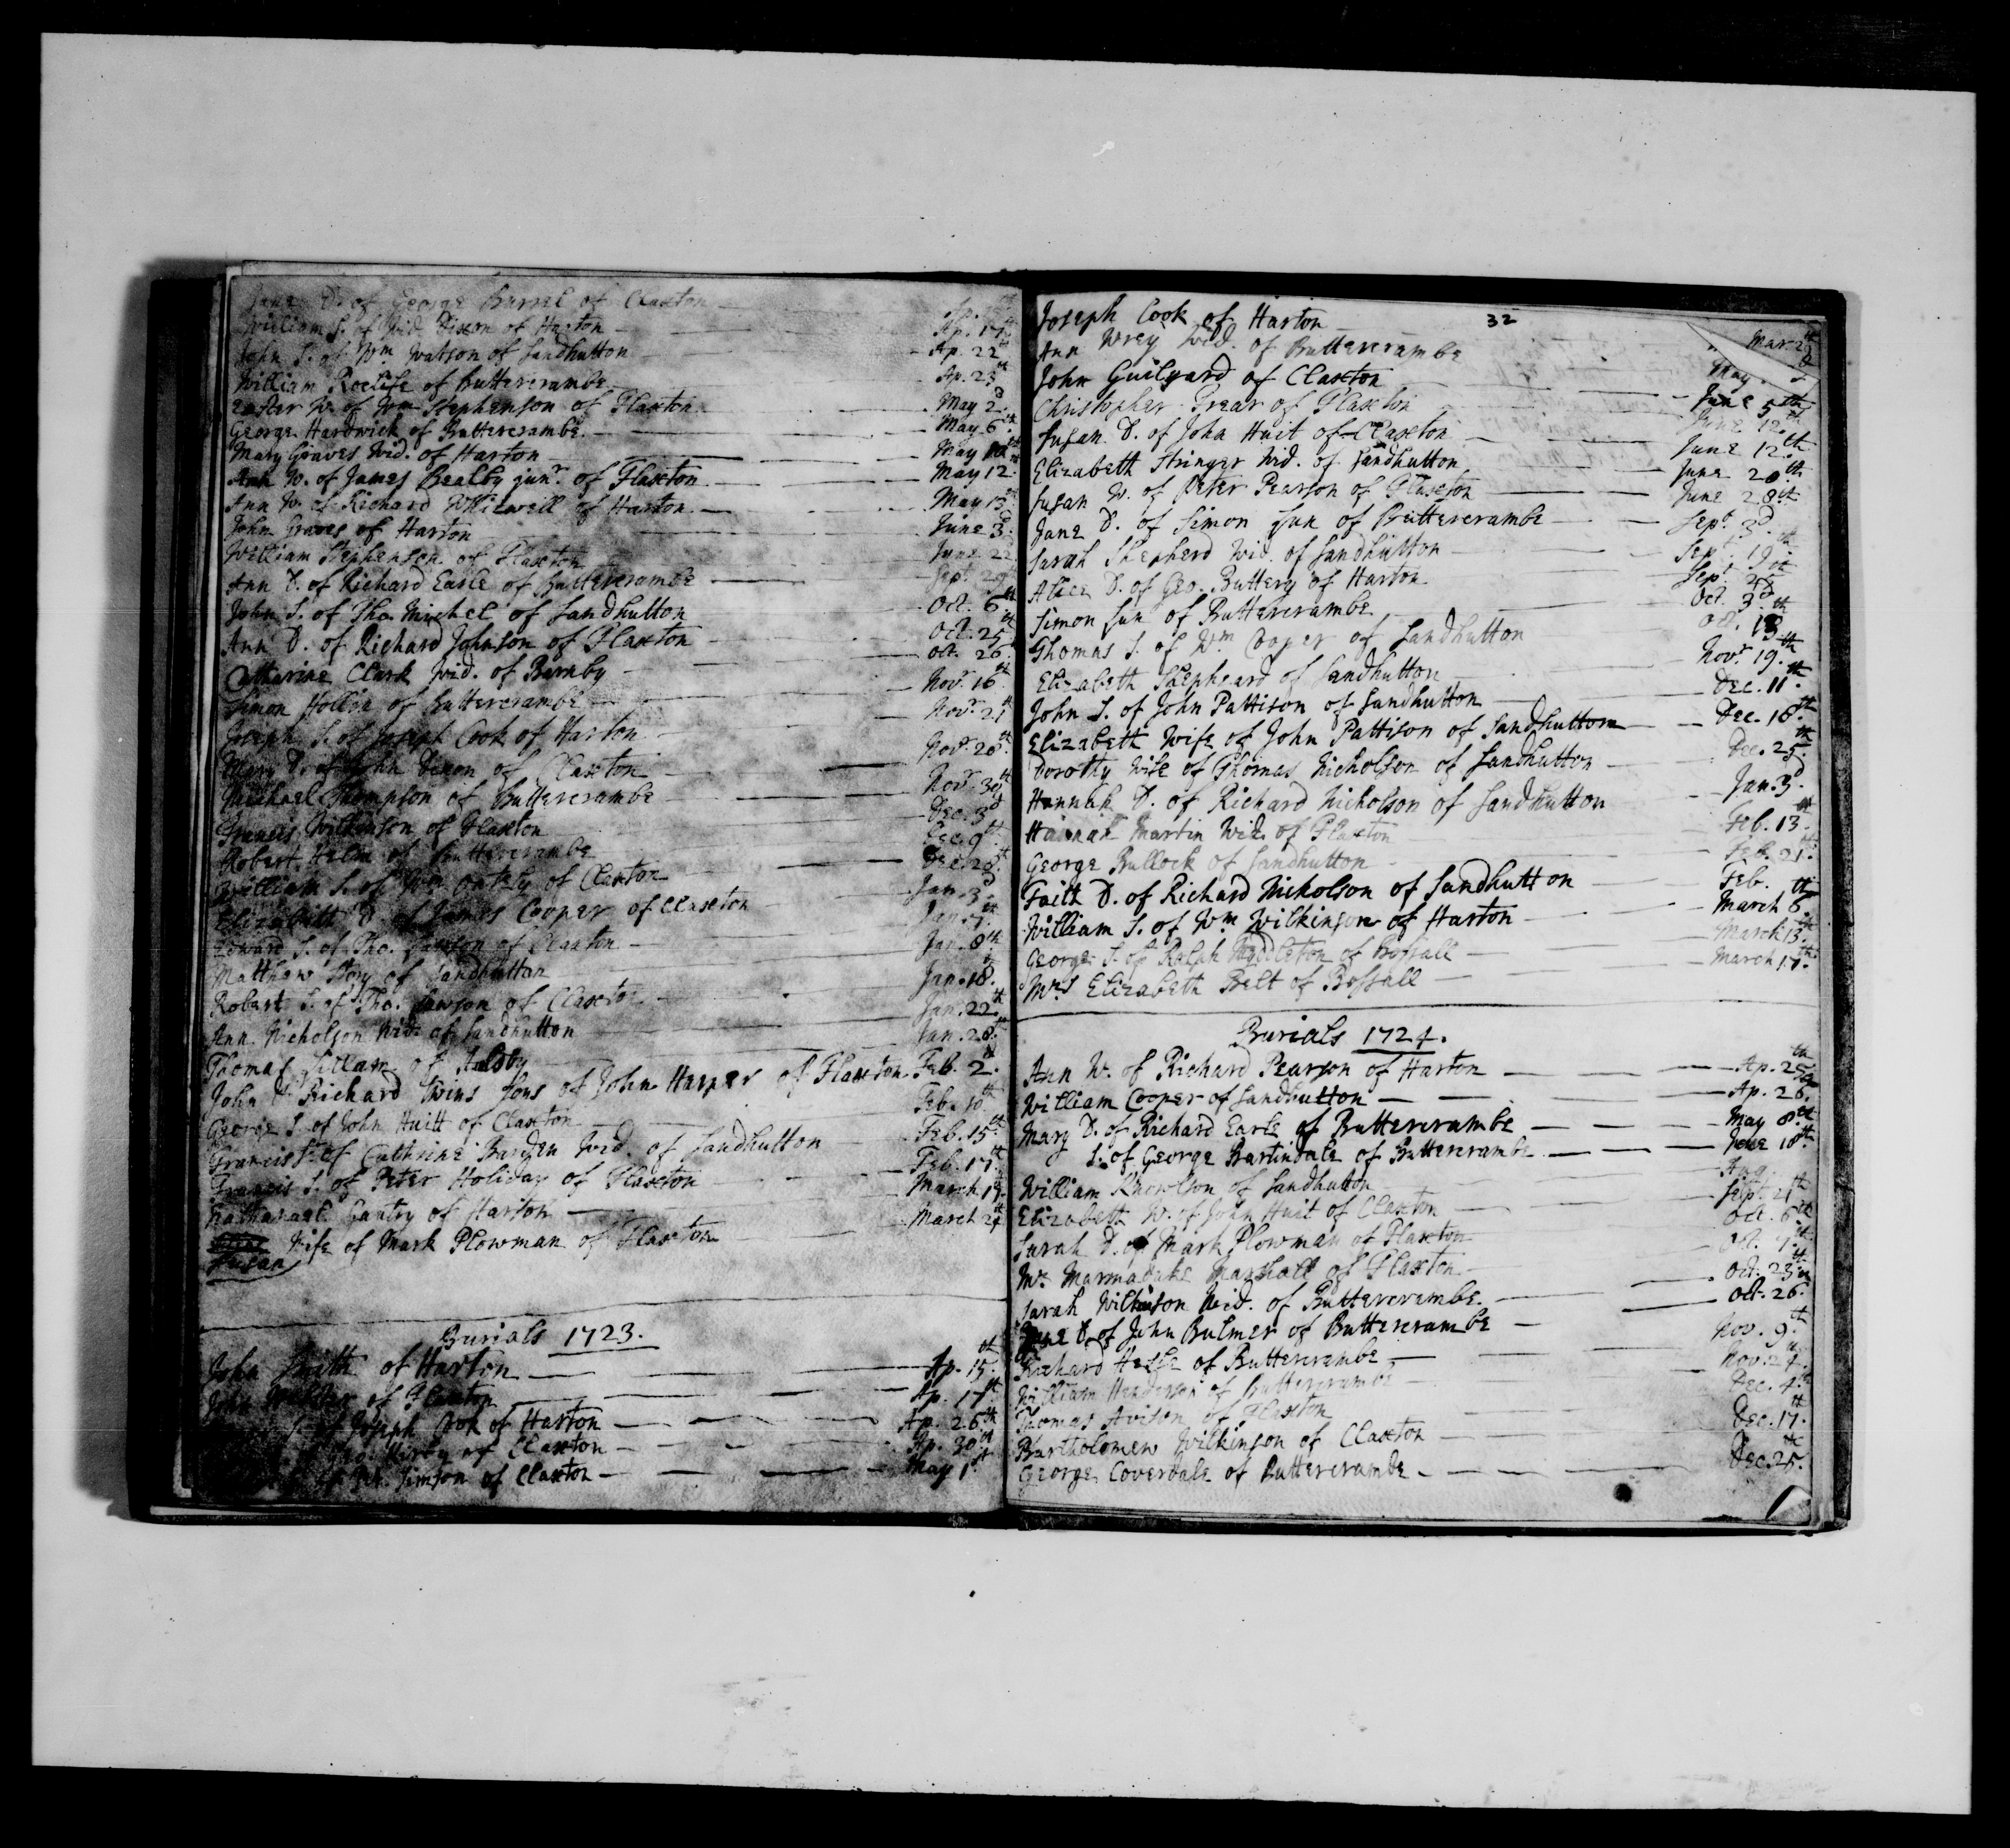 Jane D. of George Burrel of Claxton
William S. of Wid. Dixon of Harton Ap. 17th
John S. of Wm Watson of Sandhutton Ap. 22
William Roclife of Buttercrambe Ap. 23th
Easter W. of Wm Stephenson of Flaxton May 2d
George Hardwick of Buttercrambe May 6th
Mary Graves Wid. of Harton May
Ann W. of James Bealby junr. of Flaxton May 12
Ann W. of Richard Whitwell of Harton May 15
John Graves of Harton June 3d
William Stephenson of Flaxton June 22
Ann D. of Richard Earle of Buttercrambe Sept. 29
John S. of Tho. Michel of Sandhutton Oct. 6th
Ann D. of Richard Johnson of Flaxton Oct. 25th
Catharine Clark Wid. of Barnby Oct. 26
Simon Hollin of Buttercrambe Novr. 16th
Joseph S. of Joseph Cook of Harton Novr. 21
Mary D. of John Dixon of Claxton Novr. 28th
Michael Thompson of Buttercrambe Novr. 30th
Francis Wilkinson of Flaxton Dec. 3d
Robert Helm of Buttercrambe Dec. 9th
William S. of Wm of Claxton Dec. 28th
Elizabeth D. of James Cooper of Claxton Jan. 3d
Edward S. of Tho. Lawson of Claxton Jan. 7th
Matthew Story of Sandhutton Jan. 8th
Robert S. of Tho. Lawson of Claxton Jan. 18th
Ann Nicholson Wid. of Sandhutton Jan. 22
Thomas of Jan. 28th
John & Richard twins sons of John Harper of Flaxton Feb. 2d
George S. of John Huitt of Claxton Feb. 10th
Francis S. of Cathrine Barden Wid. of Sandhutton Feb. 15th
Francis S. of Peter Holiday of Flaxton Feb. 17th
Nathanael Gantry of Harton March 19
Susan Wife of Mark Plowman of Flaxton March 24th
Burials 1723.
John Smith of Harton Ap. 15th
John of Flaxton Ap. 17th
S. of Joseph Cook of Harton Ap. 26th
Geo. Kirby of Claxton Ap. 30th
Simson of Claxton May 1st
32
Joseph Cook of Harton Mar. 2
Ann Wrey Wid. of Buttercrambe
John Guilyard of Claxton May
Christopher Frear of Flaxton June 5th
Susan D. of John Huit of Claxton June 12th
Elizabeth Stringer Wid. of Sandhutton June 12th
Susan W. of Peter Pearson of Flaxton June 20th
Jane D. of Simon Sun of Buttercrambe June 28th
Sarah Shepherd Wid. of Sandhutton Sept. 3d
Alice D. of Geo. Buttery of Harton Sept. 19th
Simon Sun of Buttercrambe Sept. 28
Thomas S. of Wm Cooper of Sandhutton Oct. 3d
Elizabeth Shepheard of Sandhutton Oct. 18th
John S. of John Pattison of Sandhutton Novr. 19th
Elizabeth Wife of John Pattison of Sandhutton Dec. 11th
Dorothy Wife of Thomas Nicholson of Sandhutton Dec. 18th
Hannah D. of Richard Nicholson of Sandhutton Dec. 25th
Hannah Martin Wid. of Flaxton Jan. 3d
George Bullock of Sandhutton Feb. 13th
Faith D. of Richard Nicholson of Sandhutton Feb. 21
William S. of Wm Wilkinson of Harton Feb.
George S. of Ralph Middleton of Bossall March 6th
Mrs Elizabeth Belt of Bossall March 13th
March 17th
Burials 1724.
Ann W. of Richard Pearson of Harton Ap. 25th
William Cooper of Sandhutton Ap. 26
Mary D. of Richard Earle of Buttercrambe May 8th
S. of George Martindale of Buttercrambe June 18th
William Knowlson of Sandhutton Aug.
Elizabeth W. of John Huit of Claxton Sept. 21
Sarah D. of Mark Plowman of Flaxton Oct. 6th
Mr. Marmaduke Marshall of Flaxton Oct. 7th
Sarah Wilkinson Wid. of Buttercrambe. Oct. 23th
Jane D. of John Bulmer of Buttercrambe Oct. 26
Richard of Buttercrambe Nov. 9th
William Henderson of Buttercrambe Nov. 24
Thomas Avison of Flaxton Dec. 4th
Bartholomew Wilkinson of Claxton Dec. 17th
George Coverdale of Buttercrambe Dec. 25th